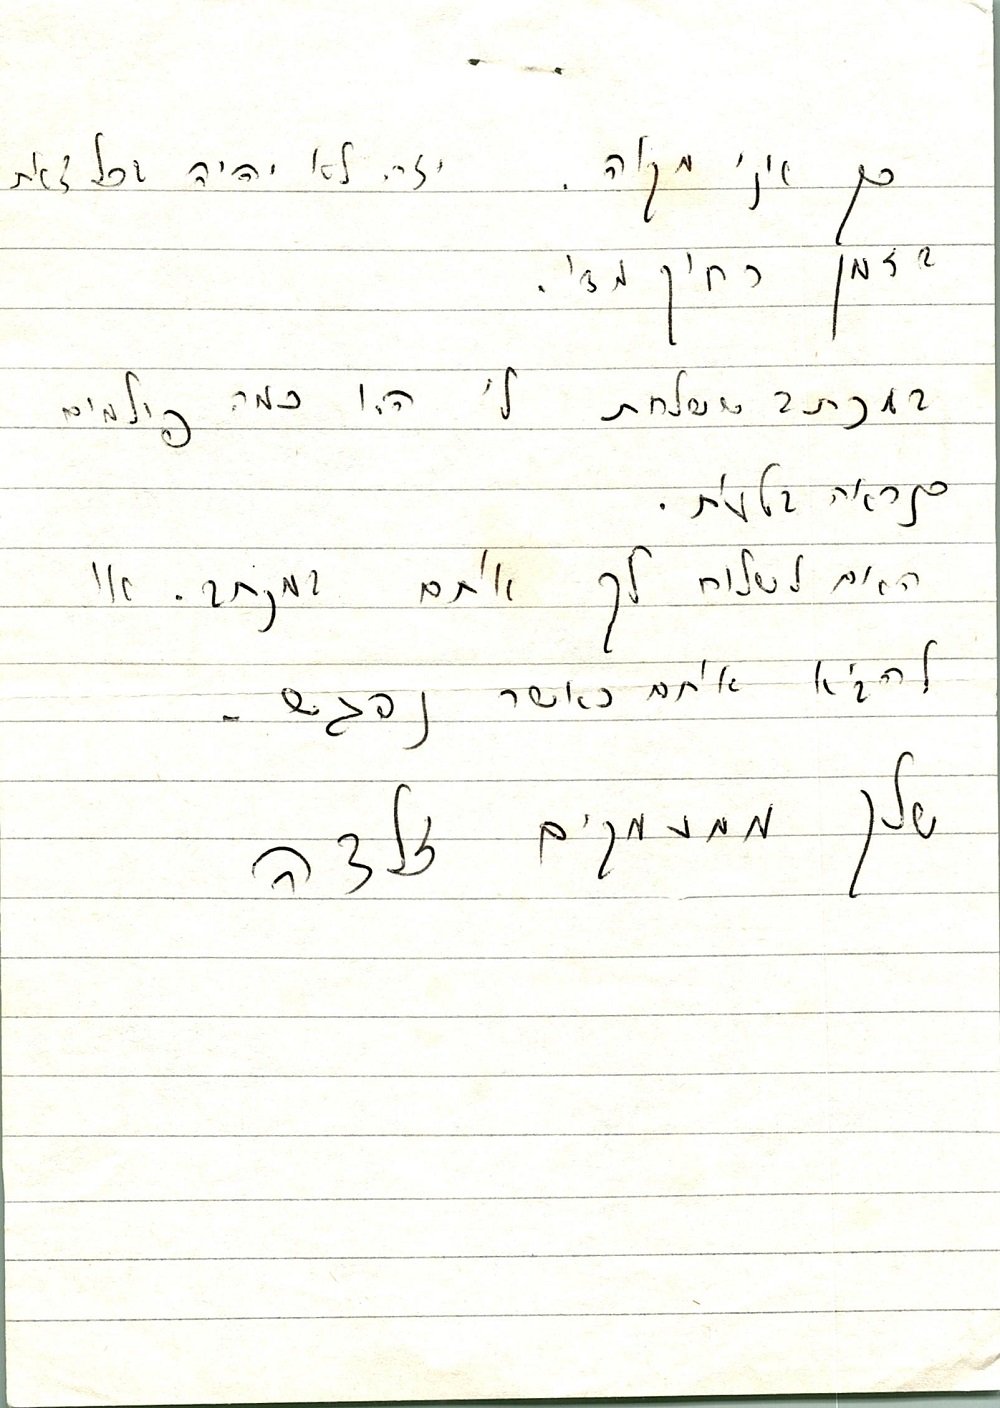 כך אני מקוה. וזה לא יהיה בכל זאת
בזמן רחוק מדי.
במכתב ששלחת לי היו כמה פילמים
כנראה בטעות.
האם לשלוח לך אותם במכתב. או
להביא אותם כאשר נפגש -
שלך ממעמקים זלדה